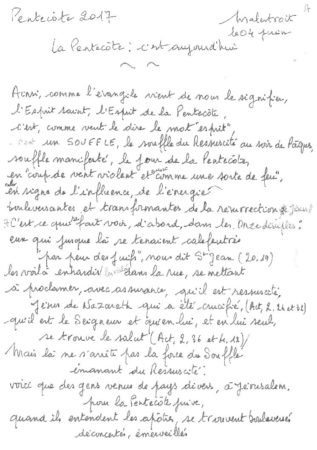 17
Pentecôte 2017
Malestroit
le 04 juin
La Pentecôte : c'est aujourd'hui
Ainsi, comme l'évangile vient de nous le signifier,
l'Esprit Saint, l'Esprit de la Pentecôte,
c'est, comme veut le dire le mot "esprit"
un SOUFFLE, le souffle du Ressuscité au soir de Pâques,
souffle manifesté, le jour de la Pentecôte,
en "coup de vent violent et comme une sorte de feu",
en signe de l'influence, de l'énergie
bouleversantes et transformantes de la résurrection de Jésus !
C'est ce que fait voir, d'abord, dans les Onze disciples :
eux qui jusque là se tenaient calfeutrés
"par peur des Juifs", nous dit St Jean (20.19)
les voilà enhardis dans la rue, se mettant
à proclamer, avec assurance, qu'il est ressuscité,
Jésus de Nazareth qui a été crucifié, (Act, 2, 24 et 32)
qu'il est le Seigneur et qu'en lui, et en lui seul,
se trouve le salut (Act, 2, 36 et 4, 12)
Mais là ne s'arrête pas la force du Souffle
émanant du Ressuscité :
voici que des gens venus de pays divers, à Jérusalem,
pour la Pentecôte juive,
quand ils entendent les apôtres, se trouvent bouleversés
déconcertés, émerveillés